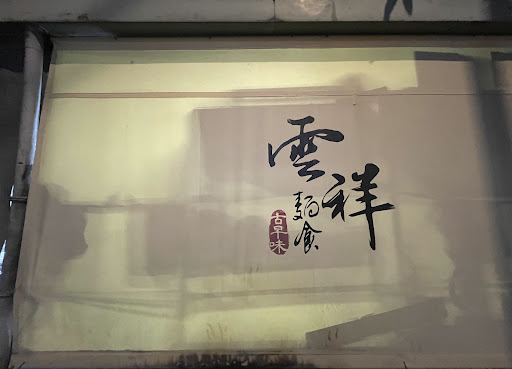 雲祥
麵食
古早味